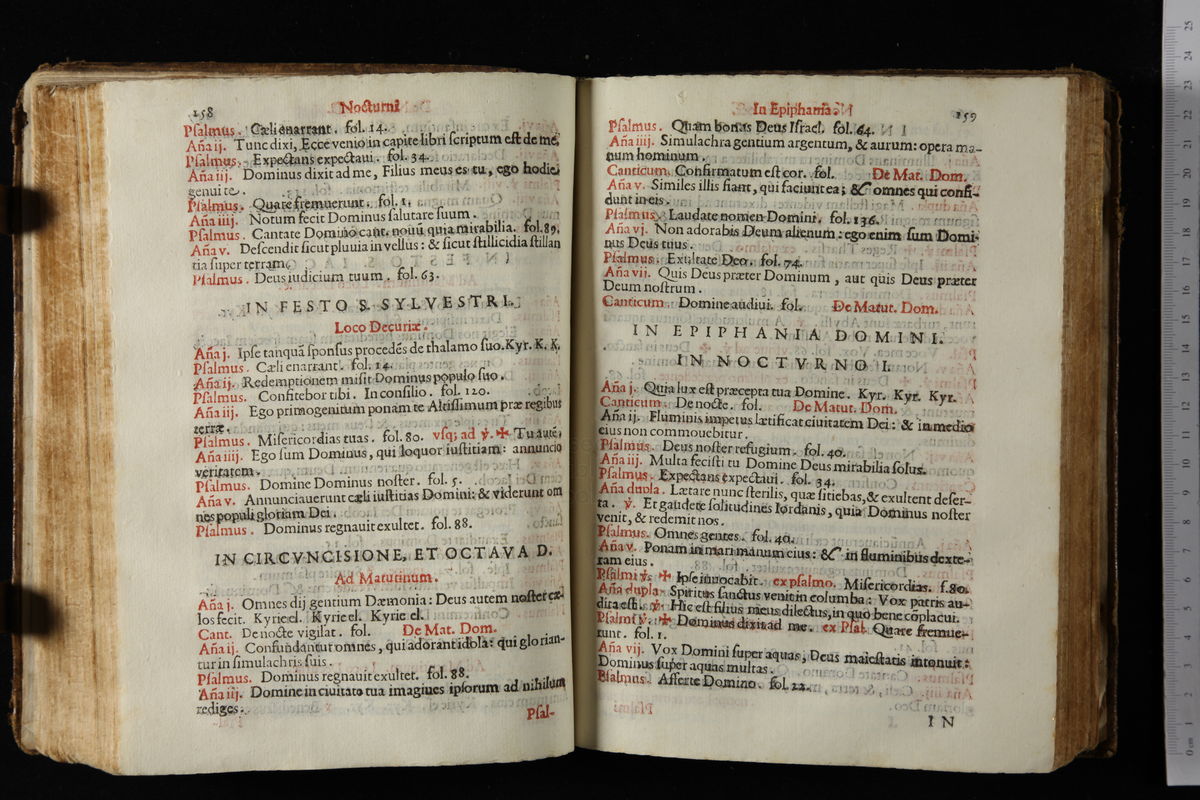 158 Nocturni
Psalmus. Cæli enarrant. fol. 14.
Aña ij. Tunc dixi, Ecce venio in capite libri scriptum est de me.
Psalmus. Expectans expectaui. fol. 34.
Aña iij. Dominus dixit ad me, Filius meus es tu, ego hodie
genui te.
Psalmus. Quare fremuerunt. fol. 1.
Aña iiij. Notum fecit Dominus salutare suum.
Psalmus. Cantate Domino cant. nouũ quia mirabilia. fol. 89.
Aña v. Descendit sicut pluuia in vellus: & sicut stillicidia stillan
tia super terram.
Psalmus. Deus iudicium tuum. fol. 63.
IN FESTO S. SYLVESTRI.
Loco Decuriæ.
Aña j. Ipse tanquã sponsus procedẽs de thalamo suo. Kyr. K. K.
Psalmus. Cæli enarrant. fol. 14.
Aña ij. Redemptionem misit Dominus populo suo.
Psalmus. Confitebor tibi. In consilio. fol. 120.
Aña iij. Ego primogenitum ponam te Altissimum præ regibus
terræ.
Psalmus. Misericordias tuas. fol. 80. vsq; ad ℣. ✠ Tu autẽ.
Aña iiij. Ego sum Dominus, qui loquor iustitiam: annuncio
veritatem.
Psalmus. Domine Dominus noster. fol. 5.
Aña v. Annunciauerunt cæli iustitias Domini: & viderunt om
nes populi gloriam Dei.
Psalmus. Dominus regnauit exultet. fol. 88.
IN CIRCVNCISIONE, ET OCTAVA D.
Ad Matutinum.
Aña j. Omnes dij gentium Dæmonia: Deus autem noster cæ-
los fecit. Kyrie el. Kyrie el. Kyrie el.
Cant. De nocte vigilat. fol. De Mat. Dom.
Aña ij. Confundantur omnes, qui adorant idola: qui glorian-
tur in simulachris suis.
Psalmus. Dominus regnauit exultet. fol. 88.
Aña iij. Domine in ciuitate tua imagines ipsorum ad nihilum
rediges.
Psal-
In Epiphania. 159
Psalmus. Quam bonus Deus Israel. fol. 64.
Aña iiij. Simulachra gentium argentum, & aurum: opera ma-
num hominum.
Canticum. Confirmatum est cor. fol. De Mat. Dom.
Aña v. Similes illis fiant, qui faciunt ea; & omnes qui confi-
dunt in eis.
Psalmus. Laudate nomen Domini. fol. 136.
Aña vj. Non adorabis Deum alienum: ego enim sum Domi-
nus Deus tuus.
Psalmus. Exultate Deo. fol. 74.
Aña vij. Quis Deus præter Dominum, aut quis Deus præter
Deum nostrum.
Canticum. Domine audiui. fol. De Matut. Dom.
IN EPIPHANIA DOMINI.
IN NOCTVRNO I.
Aña j. Quia lux est præcepta tua Domine. Kyr. Kyr. Kyr.
Canticum. De nocte. fol. De Matut. Dom.
Aña ij. Fluminis impetus lætificat ciuitatem Dei: & in medio
eius non commouebitur.
Psalmus. Deus noster refugium. fol. 40.
Aña iij. Multa fecisti tu Domine Deus mirabilia solus.
Psalmus. Expectans expectaui. fol. 34.
Aña dupla. Lætare nunc sterilis, quæ sitiebas, & exultent deser-
ta. ℣. Et gaudete solitudines Iordanis, quia Dominus noster
venit, & redemit nos.
Psalmus. Omnes gentes. fol. 40.
Aña v. Ponam in mari manum eius: & in fluminibus dexte-
ram eius.
Psalmi ℣s ✠ Ipse inuocabit. ex psalmo. Misericordias. f. 80.
Aña dupla. Spiritus sanctus venit in columba: Vox patris au-
dita est. ℣. Hic est filius meus dilectus, in quo bene cõplacui.
Psalmi ℣. ✠ Dominus dixit ad me. ex Psal. Quare fremue-
runt. fol. 1.
Aña vij. Vox Domini super aquas, Deus maiestatis intonuit:
Dominus super aquas multas.
Psalmus. Afferte Domino. fol. 22.
IN